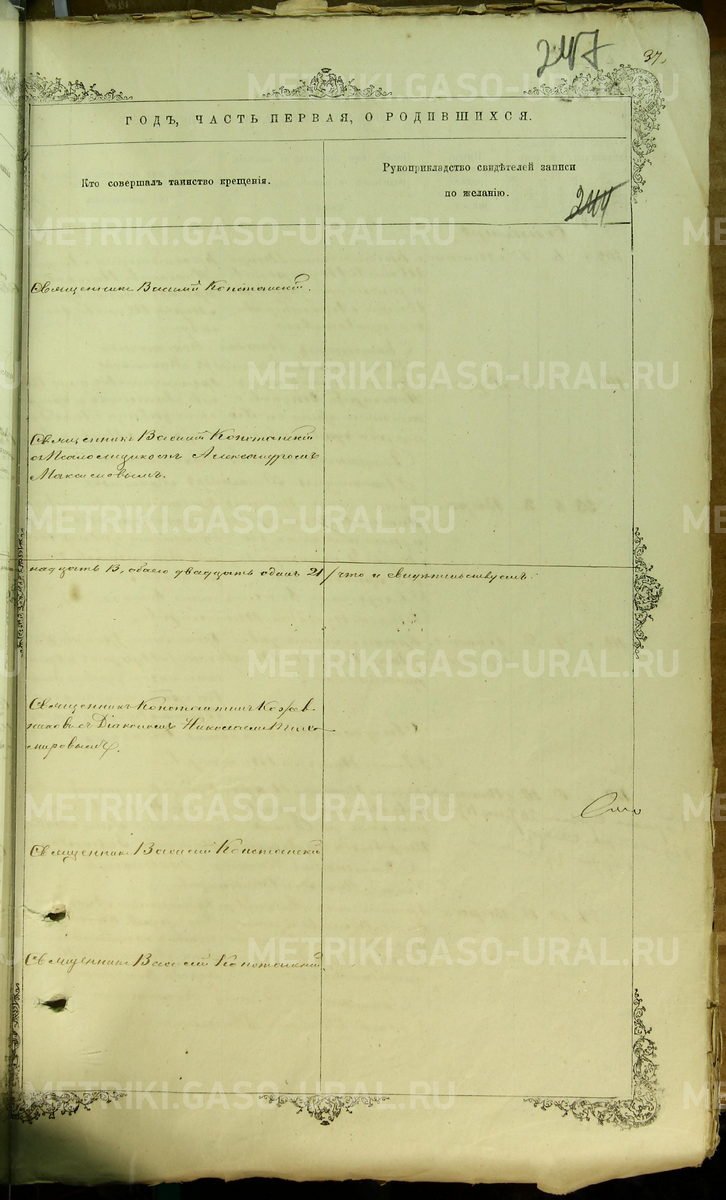 247
37.
ГОДЪ, ЧАСТЬ ПЕРВАЯ, О РОДИВШИХСЯ.
Кто совершалъ таинство крещенія.
Рукоприкладство свидѣтелей записи
по желанію.
244
Священникъ Василій
Священникъ Василій
Псаломщикомъ Александромъ
Максимовымъ.
надцать 13, обоего двадцать одинъ 21 / что и свидѣтельствуемъ.
Священникъ Константинъ
Діакономъ Николаемъ Тихо-
мировымъ.
Священникъ Василій
Священникъ Василій
METRIKI.GASO-URAL.RU